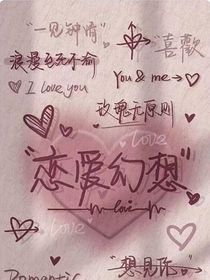 "一见钟情"
"喜歡
浪漫至死不渝
You & me →
I love you
玫瑰无原则
Love
"恋爱幻想"
love
Love
"想见你"
Romantic